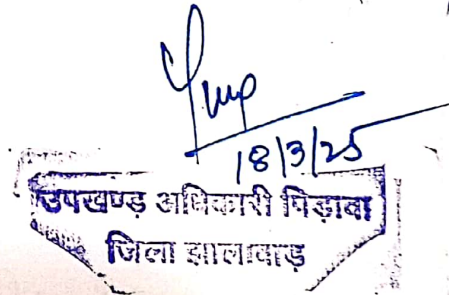 18/3/25
उपखण्ड़ अधिकारी पिड़ावा
जिला झालावाड़